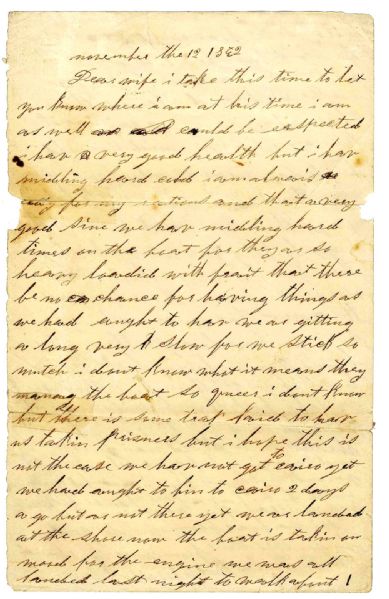 november the 12 1862
Dear wife i take this time to let
you know where i am at his time i am
as well as could be exspected
i hav a very good health but i hav
midling heard cold i am alwais
for my rations and that a very
good sine we hav midling hard
times on the boat for they ar so
heavy loadid with frait that there
be no chance for having things as
we had aught to hav we ar gitting
a long very slow for we stick so
mutch i dont know what it means they
manag the boat so queer i dont know
but there is some trap laid to hav
us takin prisners but i hope this is
not the case we hav not got to cairo yet
we had aught to bin to cairo 2 days
a go but ar not there yet we ar landed
at the shore now the boat is takin on
wood for the engine we was all
landed last night to walk a